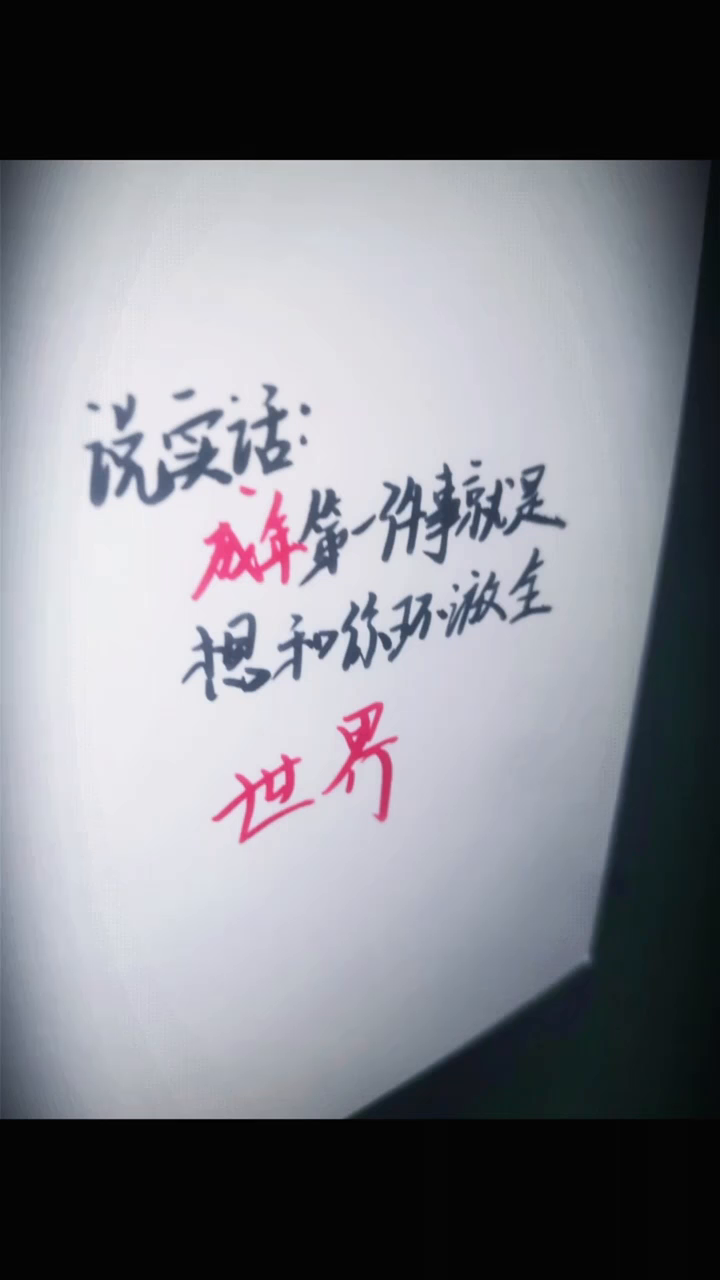 说实话:
成年第一件事就是
想和你环游全
世界